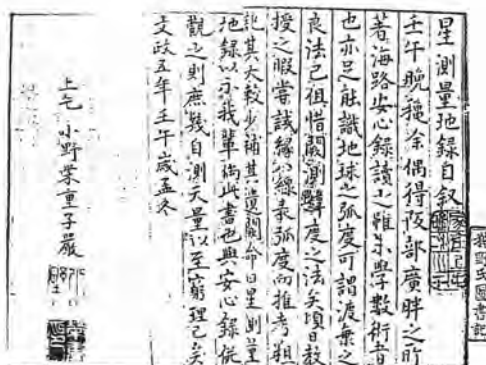 星測量地錄自叙
壬午晚穐余偶得阪部廣胖之所
著海路安心錄讀之雖未學數術者
也亦足能識地球之弧度可謂渡氣之
良法已但惜闕測量度之法矣項日教
授之暇嘗試緣線表弧度而推考粗
記其大較少補其遺闕命曰星測量
地錄以示我輩倘此書也與安心錄併
觀之則庶幾自測天量以至窮理已矣
文政五年壬午歲孟冬
上毛 小野栄重子嚴